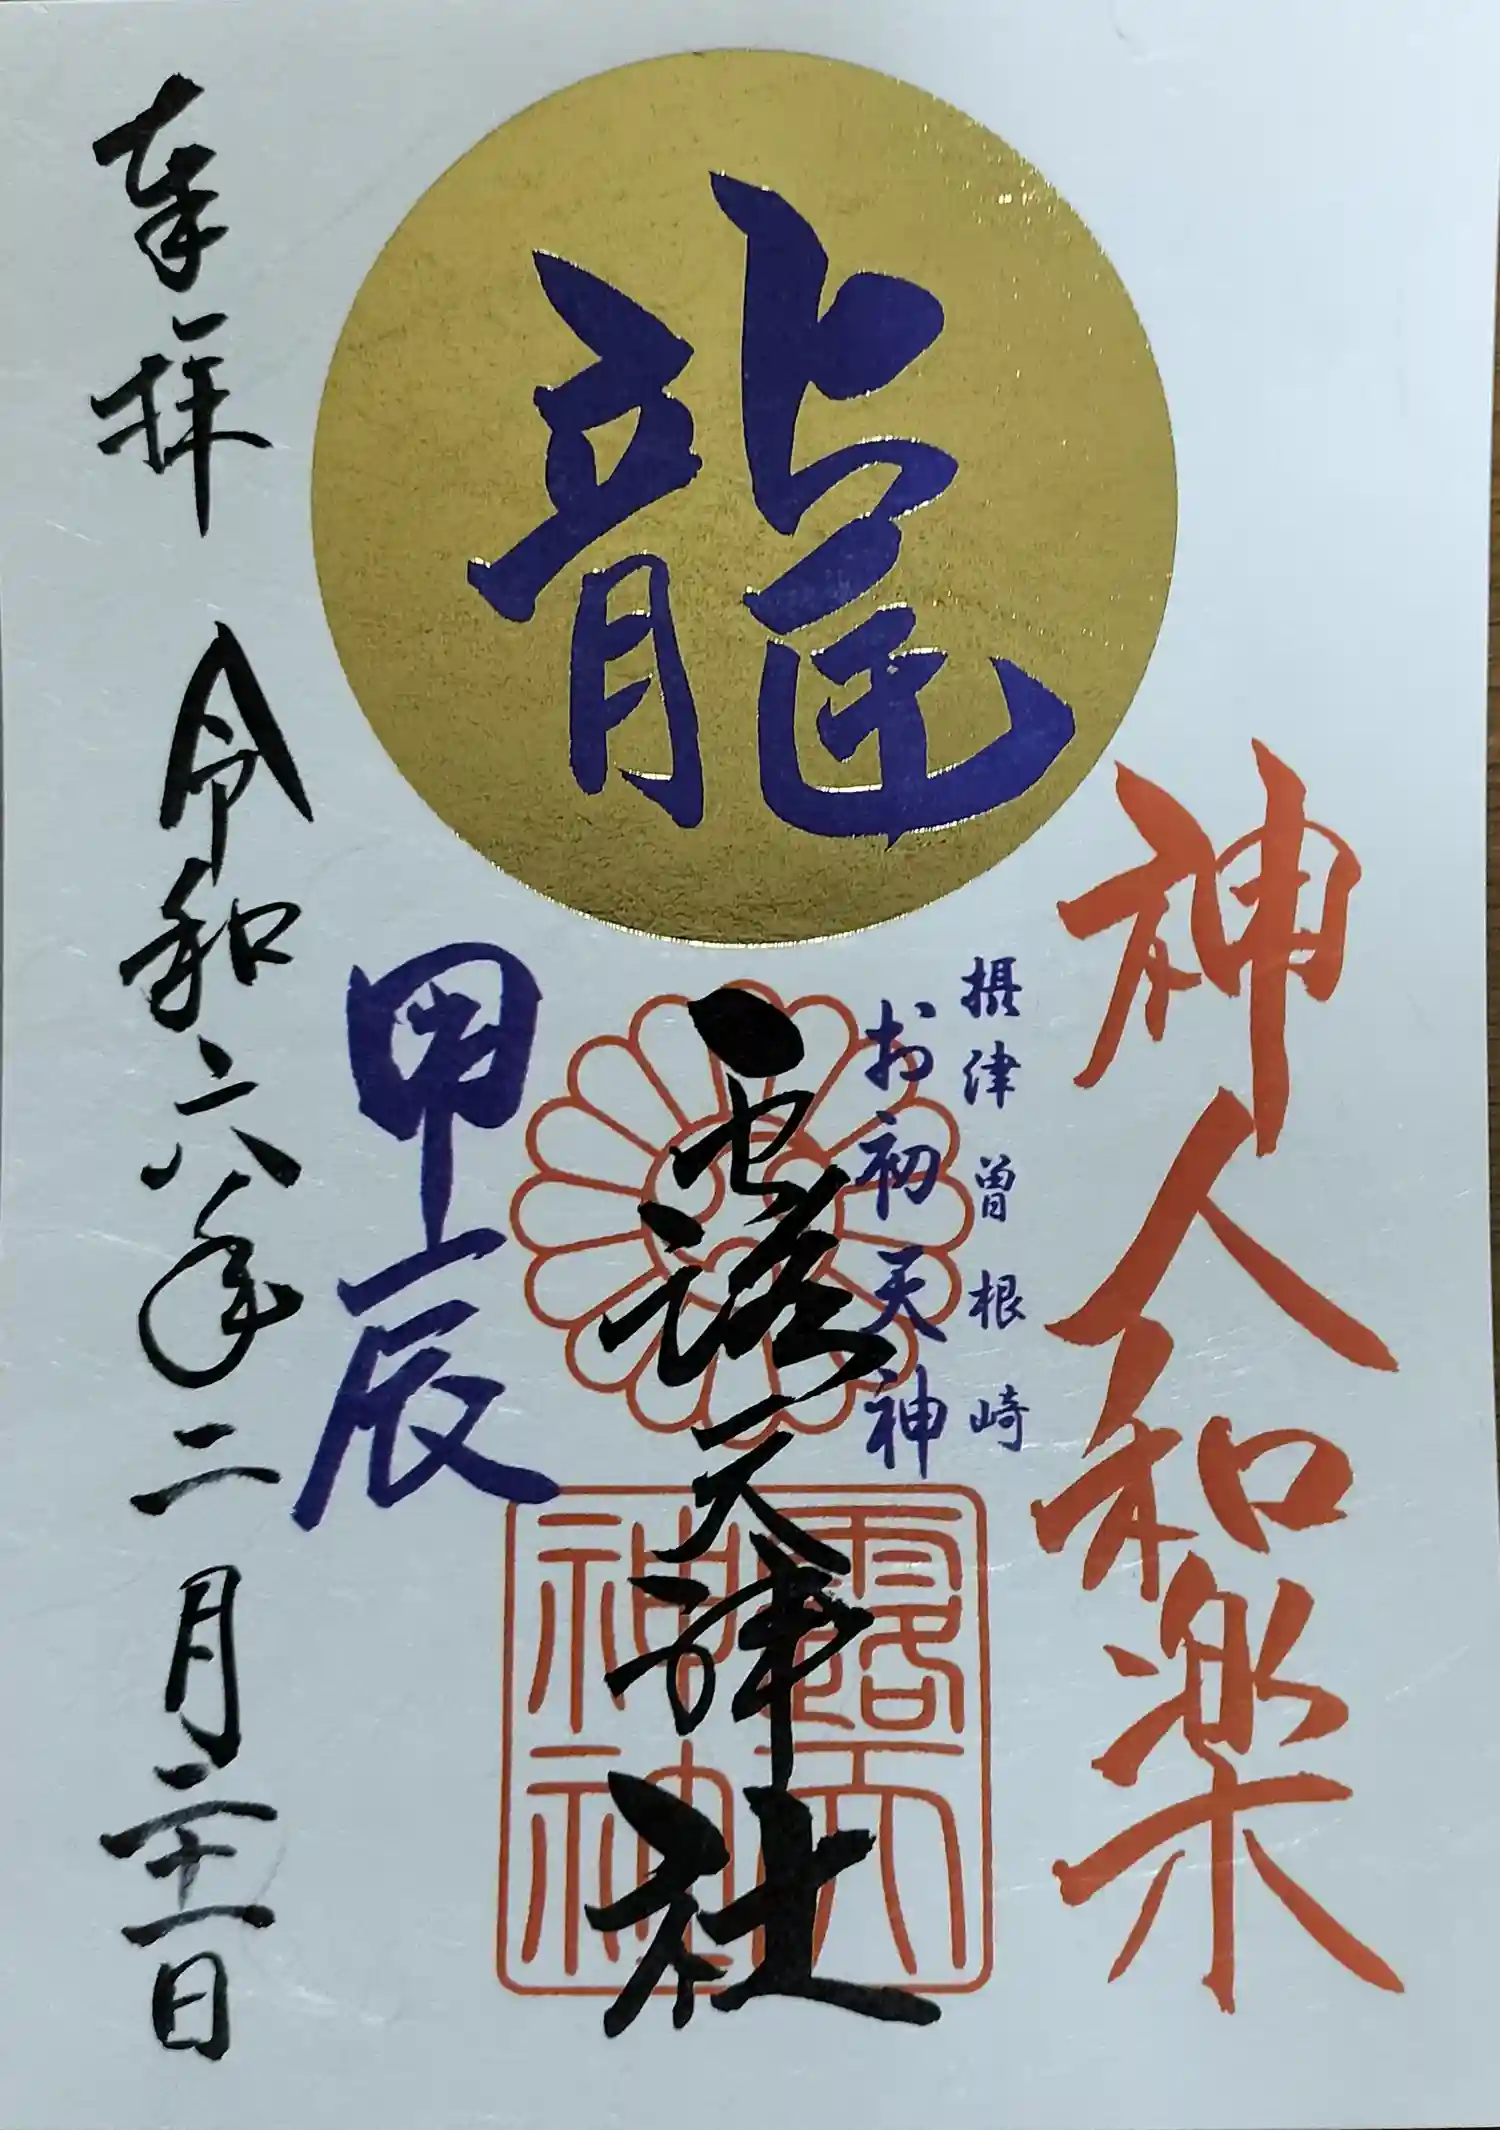 龍
神人和楽
摂津曽根崎
お初天神
露天神社
甲辰
奉拝
令和六年二月二十一日
露天
神社